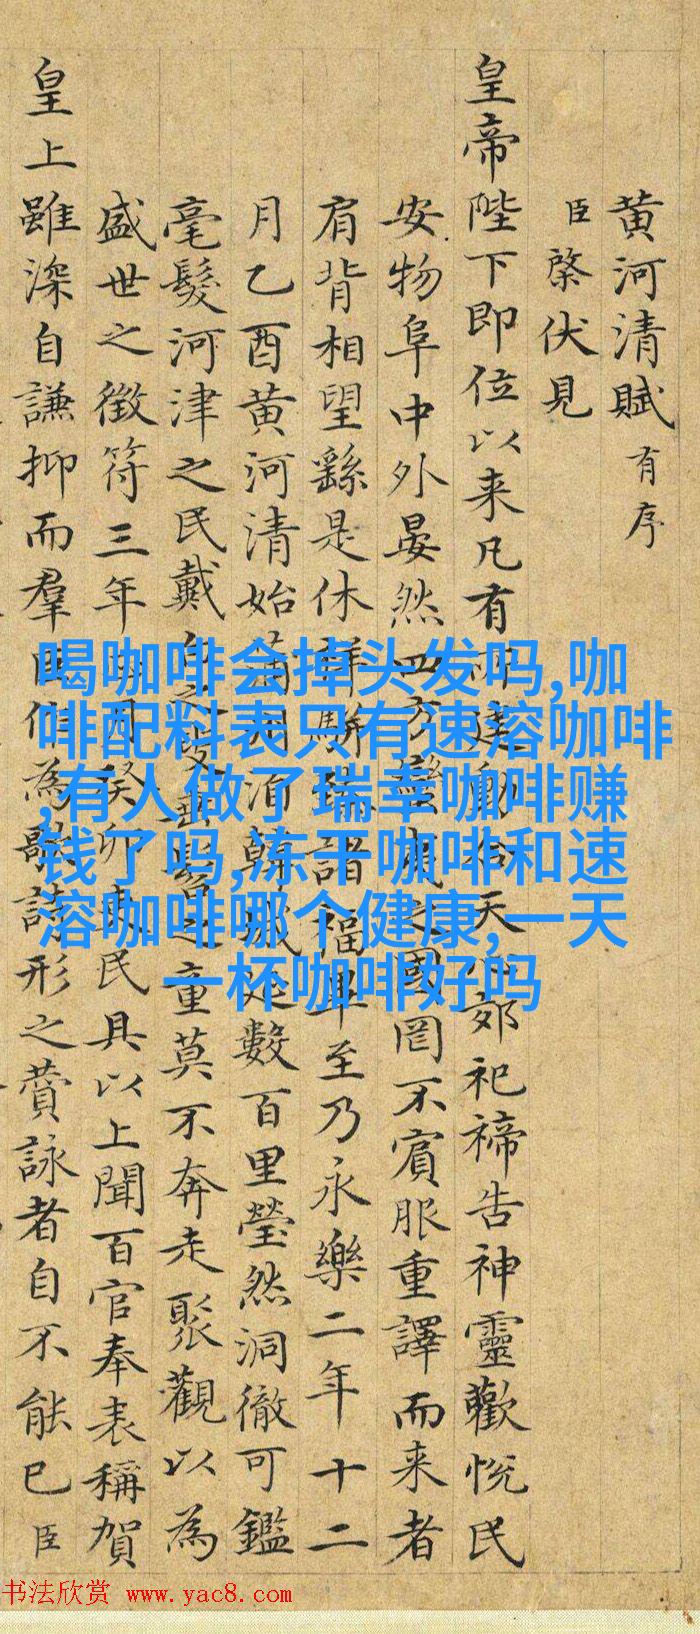 黄河清賦有序
臣棨伏見
皇帝陛下即位以来凡有所建動合天心郊祀禘告神靈歡悦民
安物阜中外晏然四方蠻夷之國罔不賓服重譯而来者
肩背相望繇是休祥駢臻諸福畢至乃永樂二年十二
月乙酉黄河清始蒲州洎韓城延數百里瑩然洞徹可鑑
毫髮河津之民戴白之叟垂髫之童莫不奔走聚觀以為
盛世之徵符三年月癸卯吏民具以上聞百官奉表稱賀
皇上雖深自謙抑而羣臣作為歌詩形之賛詠者自不能已臣
喝咖啡会掉头发吗,咖
啡配料表只有速溶咖啡
,有人做了瑞幸咖啡赚
钱了吗,冻干咖啡和速
溶咖啡哪个健康,一天
一杯咖啡好吗
书法欣赏 www.yac8.com